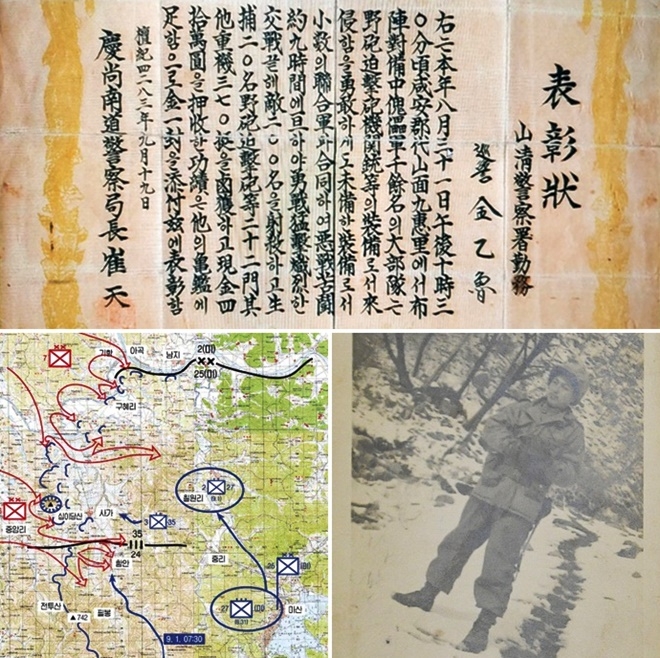 表彰狀
山淸警察署勤務
巡警 金乙魯
右는本年八月三十一日午後十時三
〇分頃咸安郡代山面九惠里에서布
陣對備中傀儡軍千餘名의大部隊는
野砲迫擊砲機関銃等의裝備로서來
侵함을勇敢하게도未備한裝備로서
小数의聯合軍과合同하여悪戰苦鬪
約九時間에亘하야勇戰猛擊熾烈한
交戰끝에敵二〇〇名을射殺하고生
捕二〇名野砲迫擊砲等二十二門其
他重機三七〇挺을鹵獲하고現金四
拾萬圓을押收한功績은他의龜鑑에
足함으로金一封을添付玆에表彰함
檀紀四二八三年九月十九日
慶尙南道警察局長崔天
아곡
남지
2(미)
25(미)
구혜리
2 27
칠원리
십이당산
사가
35
중암리
35
24
함안
중리
25 (미)
전투산
필봉
742
27 (미)
마산
9. 1. 07:30